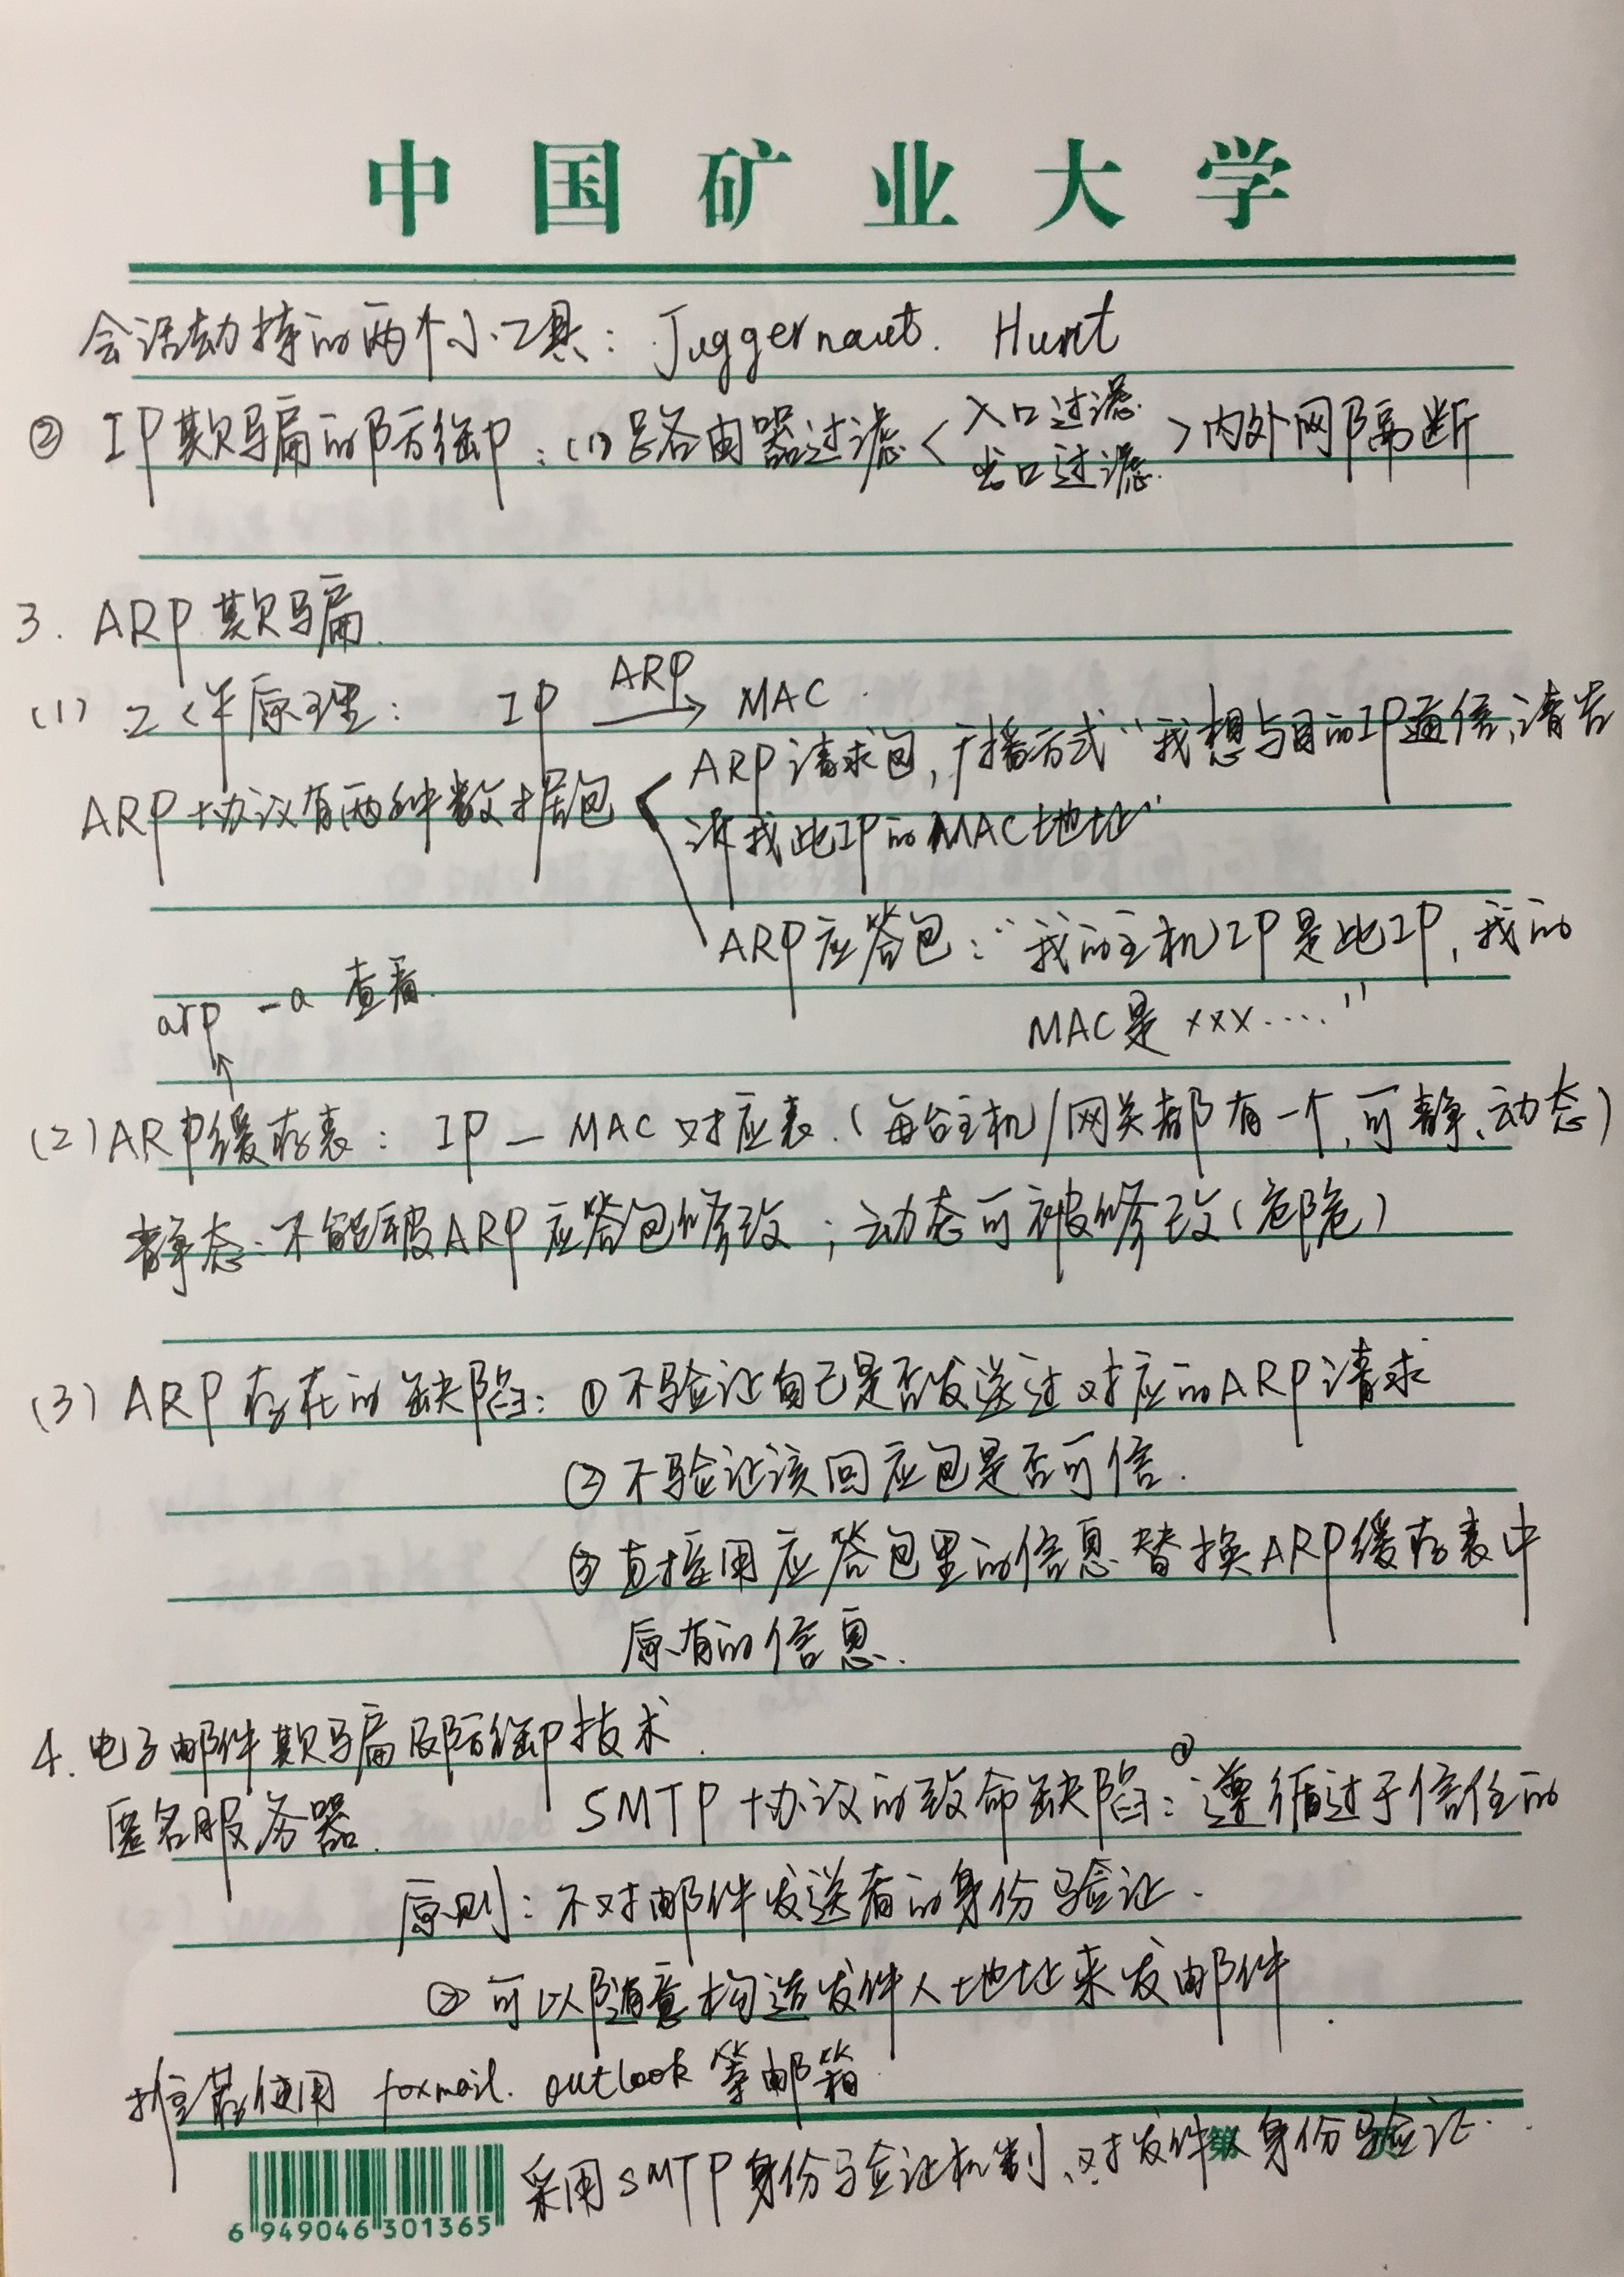 中国矿业大学
会话劫持的两个小工具: Juggernaut. Hunt
② IP欺骗的防御: (1)路由器过滤 < 入口过滤 出口过滤 > 内外网隔断
3. ARP欺骗.
(1) 工作原理: IP ARP→ MAC
ARP协议有两种数据包 < ARP请求包,广播方式“我想与目的IP通信,请告
诉我此IP的MAC地址”
ARP应答包:“我的主机IP是此IP,我的
MAC是 xxx....”
arp -a 查看.
↑
(2) ARP缓存表: IP — MAC 对应表.(每台主机/网关都有一个,可静、动态)
静态:不能被ARP应答包修改;动态可被修改(危险)
(3) ARP存在的缺陷: ①不验证自己是否发送过对应的ARP请求
②不验证该回应包是否可信.
③直接用应答包里的信息替换ARP缓存表中
原有的信息.
4. 电子邮件欺骗及防御技术.
匿名服务器. SMTP协议的致命缺陷:①遵循过于信任的
原则:不对邮件发送者的身份验证.
②可以随意构造发件人地址来发邮件.
推荐使用 foxmail. outlook等邮箱
采用SMTP身份验证机制、对发件人身份验证.
6 949046 301365